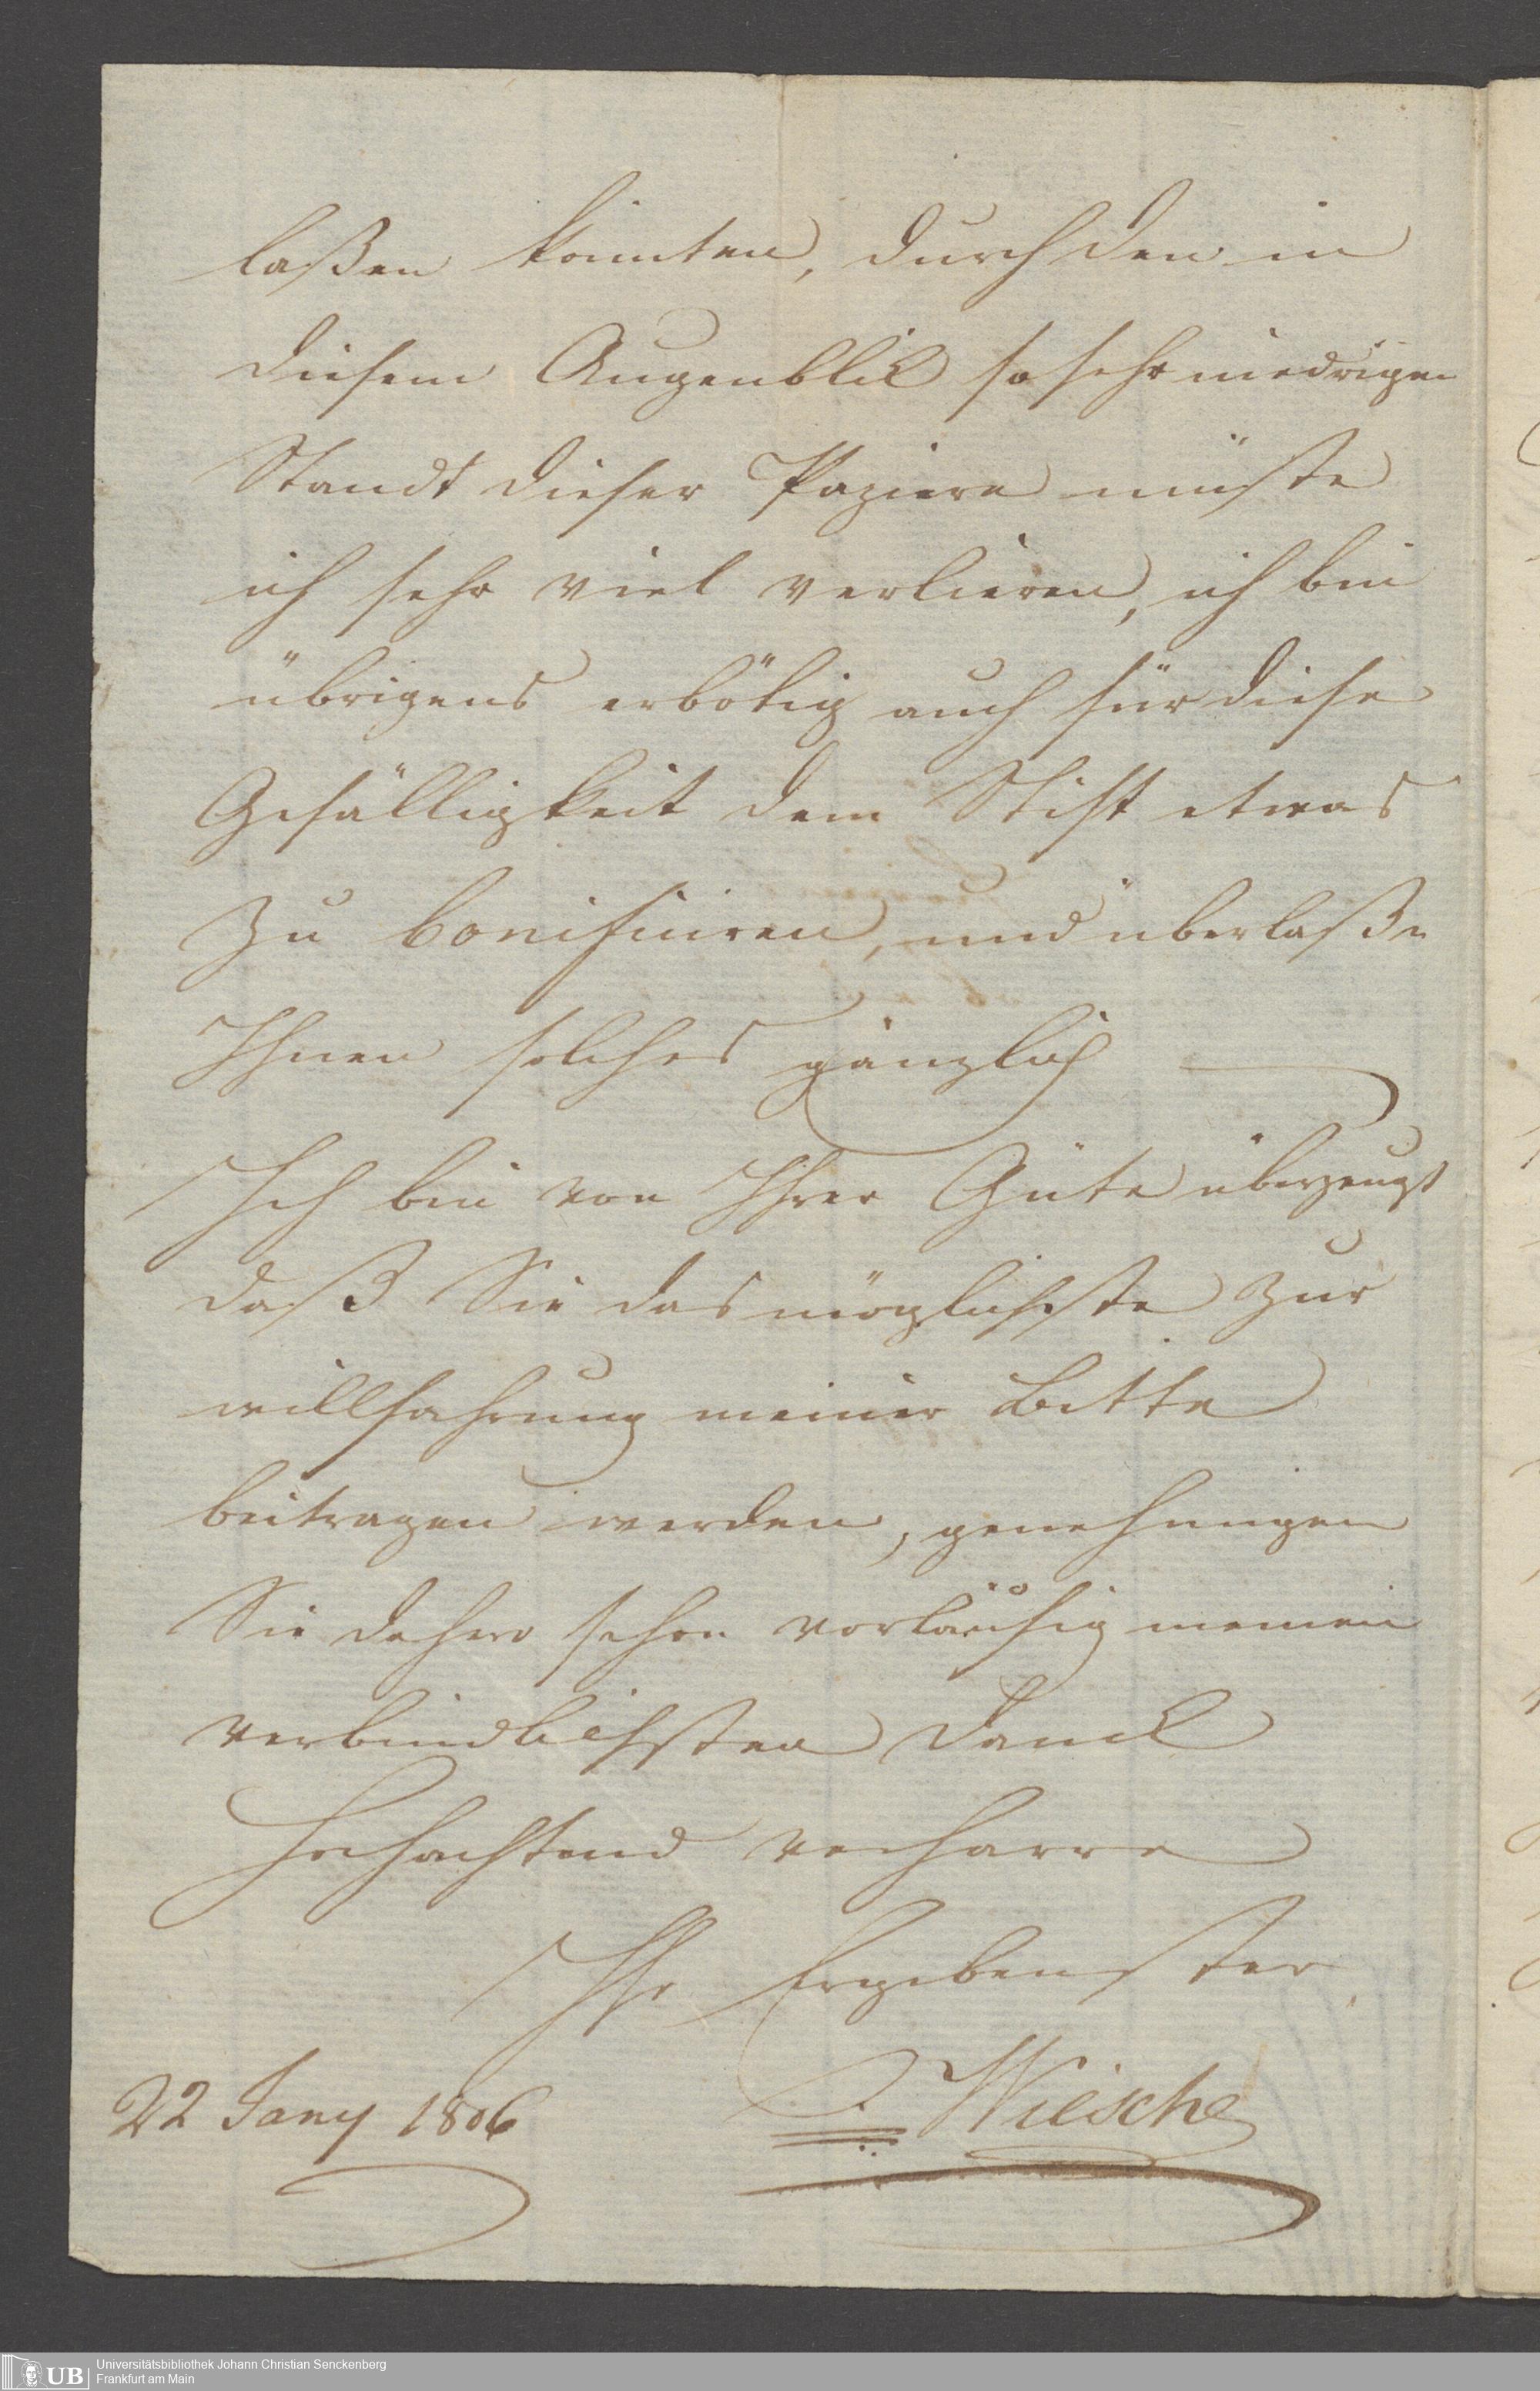 laßen konnten, durch den in
diesem Augenblick so sehr niedrigen
Standt dieser Papiere müste
ich sehr viel verlieren, ich bin
übrigens erbötig auch für diese
Gefälligkeit dem Stift etwas
zu bonifiiren, und überlaße
Ihnen solches gänzlich
Ich bin von Ihrer Güte überzeugt
daß Sie das möglichste zur
willfahrung meiner Bitte
beitragen werden, genehmigen
Sie dahero schon vorläufig meinen
verbindlichsten Danck
Hochachtend verharre
Ihr Ergebenster
Wiesche
22 Jany 1806
UB
Universitätsbibliothek Johann Christian Senckenberg
Frankfurt am Main